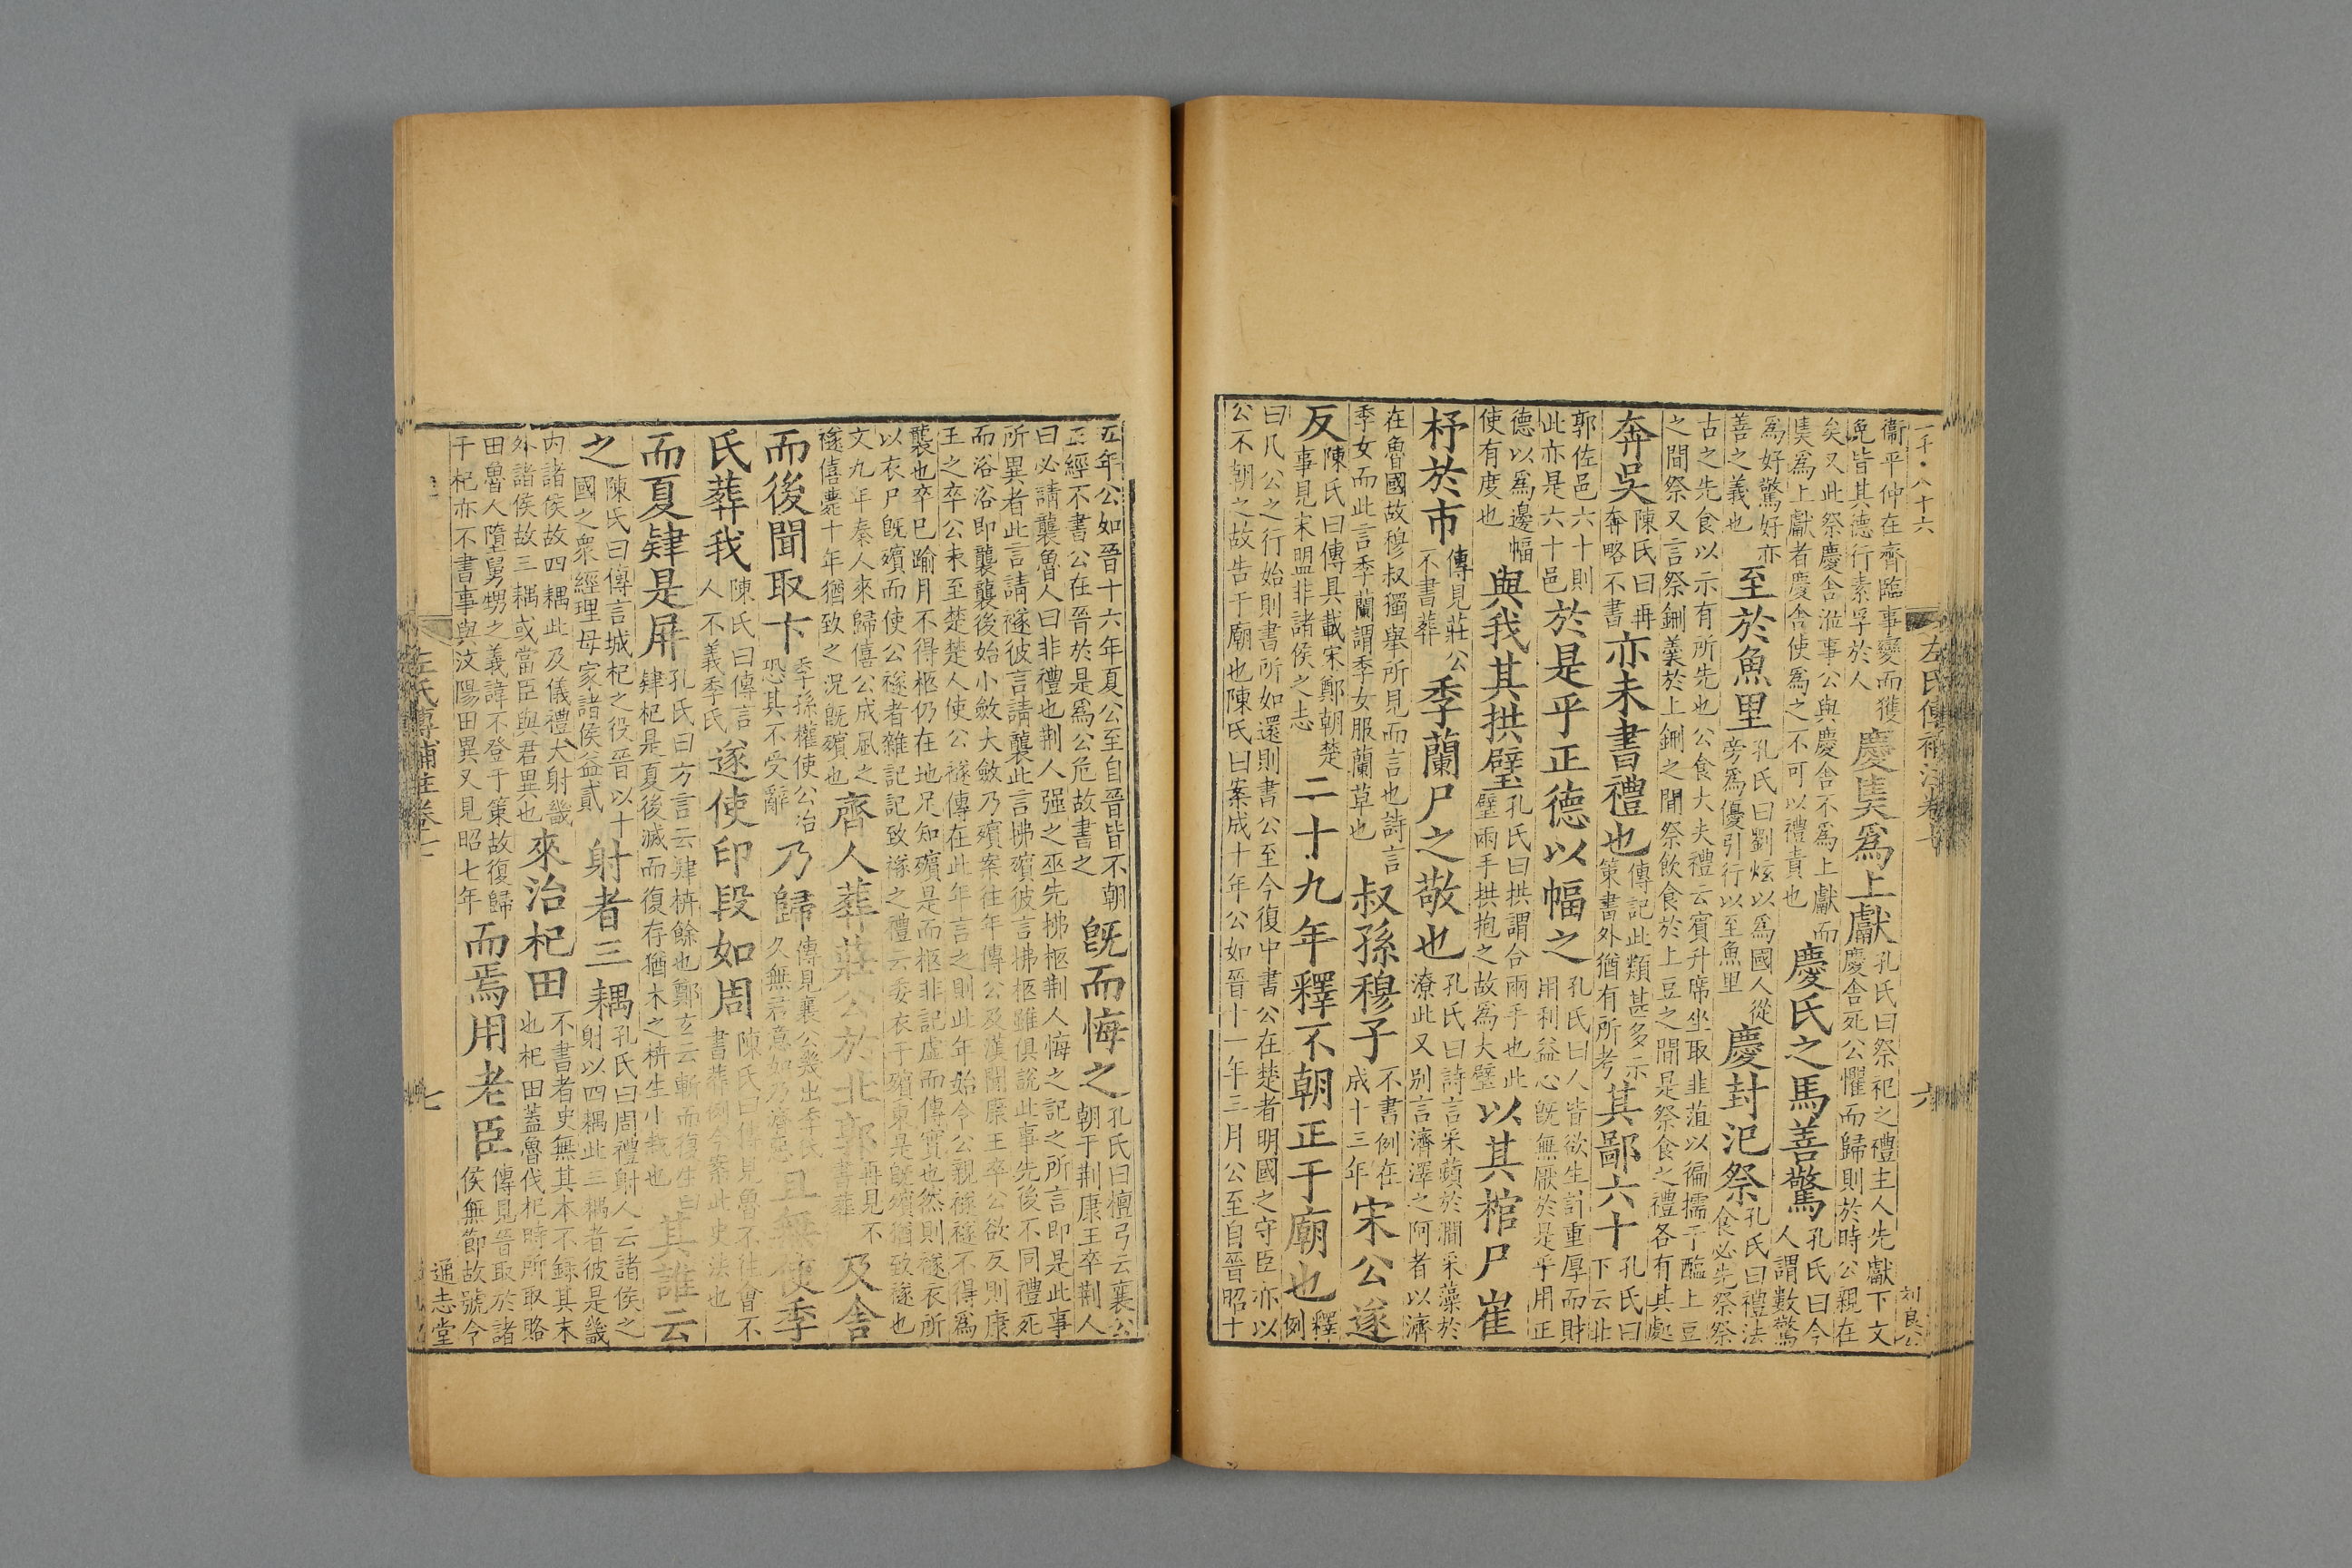 一千·八十六
左氏傳補注卷七
六
刘良公
衞平仲在齊臨事變而獲
免皆其德行素孚於人
慶奊爲上獻
孔氏曰祭祀之禮主人先獻下文
慶舍死公懼而歸則於時公親在
矣又此祭慶舍涖事公與慶舍不爲上獻而
奊爲上獻者慶舍使爲之不可以禮責也
慶氏之馬善驚
孔氏曰今
人謂數驚
爲好驚好亦
善之義也
至於魚里
孔氏曰劉炫以爲國人從
旁爲優引行以至魚里
慶封氾祭
孔氏曰禮法
食必先祭祭
古之先食以示有所先也公食大夫禮云賓升席坐取韭菹以徧擩于醢上豆
之間祭又言祭鉶羹於上鉶之間祭飲食於上豆之間是祭食之禮各有其處
奔吳
陳氏曰再
奔略不書
亦未書禮也
傳記此類甚多示
策書外猶有所考
其鄙六十
孔氏曰
下云北
郭佐邑六十則
此亦是六十邑
於是乎正德以幅之
孔氏曰人皆欲生計重厚而財
用利益心旣無厭於是乎用正
德以爲邊幅
使有度也
與我其拱璧
孔氏曰拱謂合兩手也此
璧兩手拱抱之故爲大璧
以其棺尸崔
杼於市
傳見莊公
不書葬
季蘭尸之敬也
孔氏曰詩言采蘋於澗采藻於
潦此又別言濟澤之阿者以濟
在魯國故穆叔獨舉所見而言也詩言
季女而此言季蘭謂季女服蘭草也
叔孫穆子
不書例在
成十三年
宋公遂
反
陳氏曰傳具載宋鄭朝楚
事見宋盟非諸侯之志
二十九年釋不朝正于廟也
釋
例
曰凡公之行始則書所如還則書公至今復中書公在楚者明國之守臣亦以
公不朝之故告于廟也陳氏曰案成十年公如晉十一年三月公至自晉昭十
五年公如晉十六年夏公至自晉皆不朝
正經不書公在晉於是爲公危故書之
旣而悔之
孔氏曰檀弓云襄公
朝于荆康王卒荆人
曰必請襲魯人曰非禮也荆人强之巫先拂柩荆人悔之記之所言即是此事
所異者此言請襚彼言請襲此言拂殯彼言拂柩雖俱說此事先後不同禮死
而浴浴即襲襲後始小斂大斂乃殯案往年傳公及漢聞康王卒公欲反則康
王之卒公未至楚楚人使公襚傳在此年言之則此年始令公親襚襚不得爲
襲也卒巳踰月不得柩仍在地足知殯是而柩非記虛而傳實也然則襚衣所
以衣尸旣殯而使公襚者雜記記致襚之禮云委衣于殯東是旣殯猶致襚也
文九年秦人來歸僖公成風之
襚僖薨十年猶致之況旣殯也
齊人葬莊公於北郭
再見不
書葬
及舍
而後聞取卞
季孫權使公冶
恐其不受辭
乃歸
傳見襄公幾出季氏
久無君意如乃濟惡
且無使季
氏葬我
陳氏曰傳言
人不義季氏
遂使印段如周
陳氏曰傳見魯不往會不
書葬例今案此史法也
而夏肄是屏
孔氏曰方言云肄枿餘也鄭玄云斬而復生曰
肄杞是夏後滅而復存猶木之枿生小栽也
其誰云
之
陳氏曰傳言城杞之役晉以十
國之衆經理母家諸侯益貳
射者三耦
孔氏曰周禮射人云諸侯之
射以四耦此三耦者彼是畿
内諸侯故四耦此及儀禮大射畿
外諸侯故三耦或當臣與君異也
來治杞田
不書者史無其本不錄其末
也杞田蓋魯伐杞時所取略
田魯人墮舅甥之義諱不登于策故復歸
于杞亦不書事與汶陽田異又見昭七年
而焉用老臣
傳見晉取於諸
侯無節故號令
左氏傳補註卷七
七
通志堂